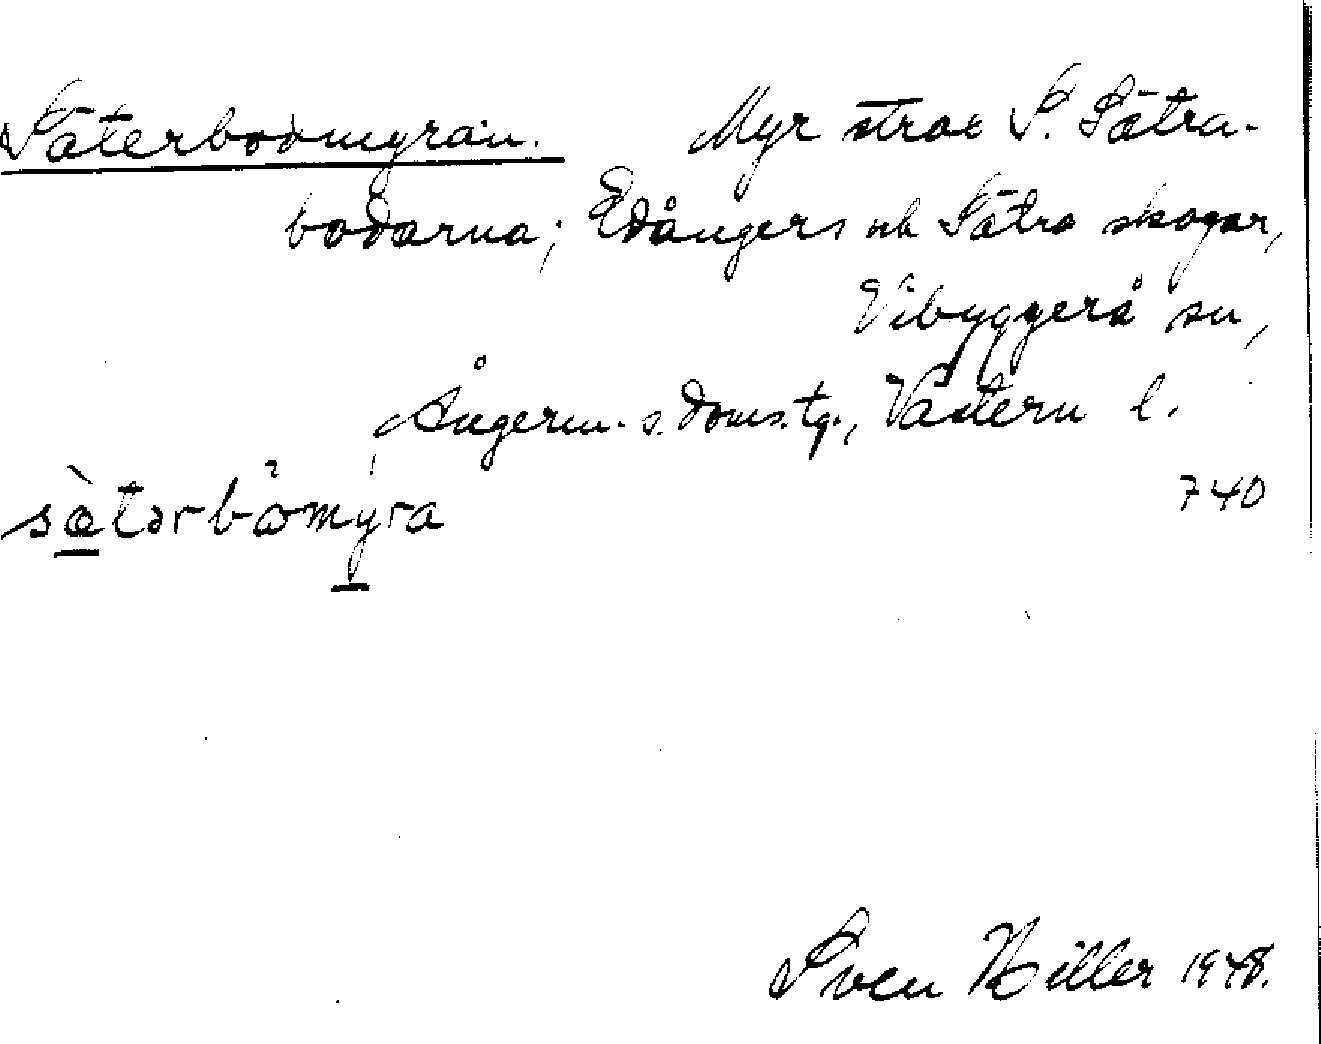 Säterbodmyran. Myr strax S. Sätra-
bodarna; Edångers och Sätra skogar,
Vibyggerå sn,
Ångerm. s. doms.tg., Västern l.
sæ̀tərbåmyra 740
Sven Hiller 1948.